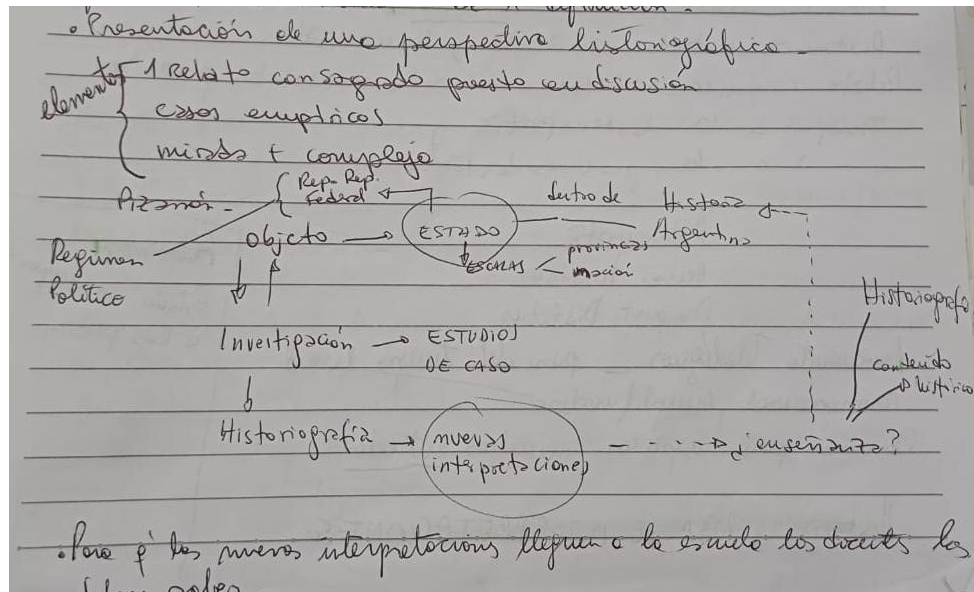 • Presentación de una perspectiva historiográfica -
elementos { 1 Relato consagrado puesto en discusión
casos empíricos
mirada + compleja
Pizarrón - { Rep. Rep. Federal
Objeto → ESTADO dentro de Historia Argentina
ESCALAS < provincias
nación
Regimen Político
Historiografía
Investigación → ESTUDIOS DE CASO
contenido histórico
Historiografía → nuevas interpretaciones - - - → ¿enseñanza?
• Para q' las nuevas interpretacions lleguen a la escuela los docents las
deben saber